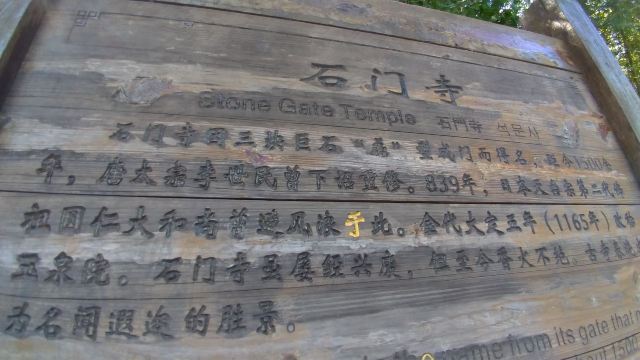 石门寺
Stone Gate Temple 石門寺 석문사
石门寺因三块巨石“磊”型成门而得名，距今1500余
年，唐太宗李世民曾下诏重修。839年，日本天台宗第二代
祖圆仁大和尚曾避风浪于此。金代大定五年（1165年）改名
玉泉院。石门寺虽屡经兴废，但至今香火不绝，古寺
为名闻遐迩的胜景。
name from its gate that
1500